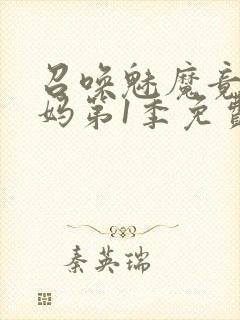 召唤魅魔竟
妈第1季免费
秦英瑞